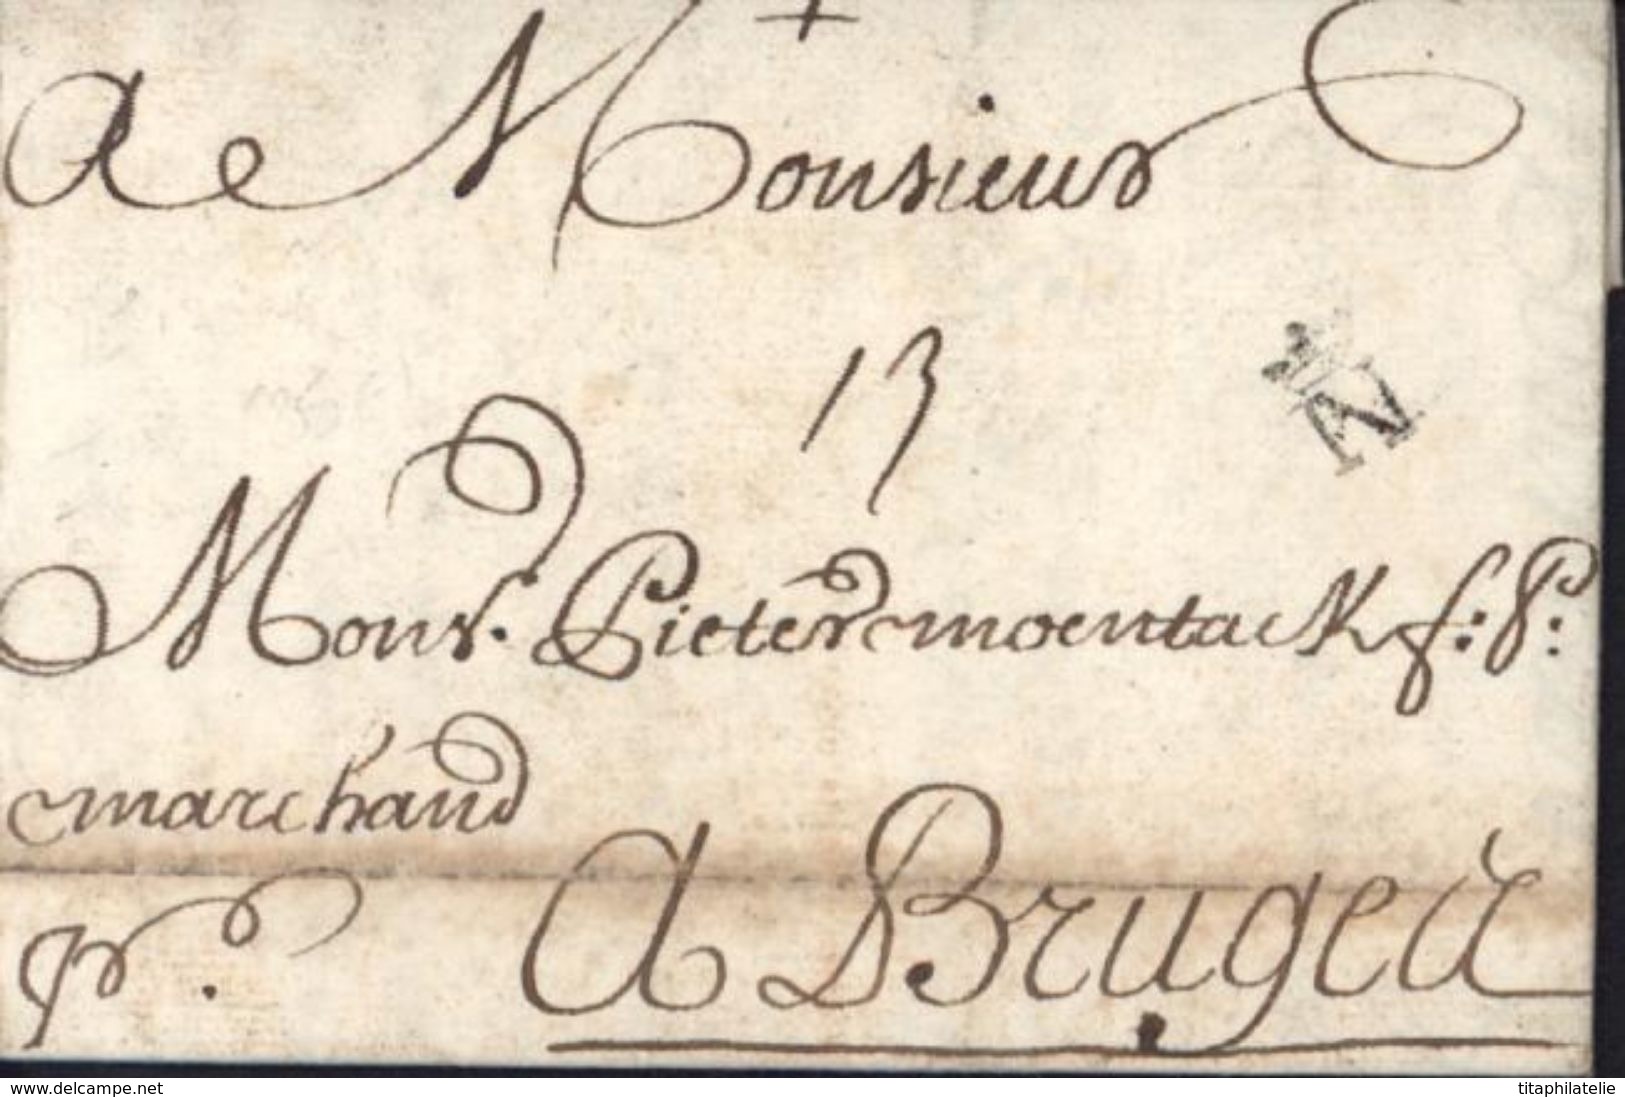 +
A Monsieur
13
N
Monsr. Pieter moentack f: P:
marchand
pr. A Bruges
www.delcampe.net
titaphilatelie